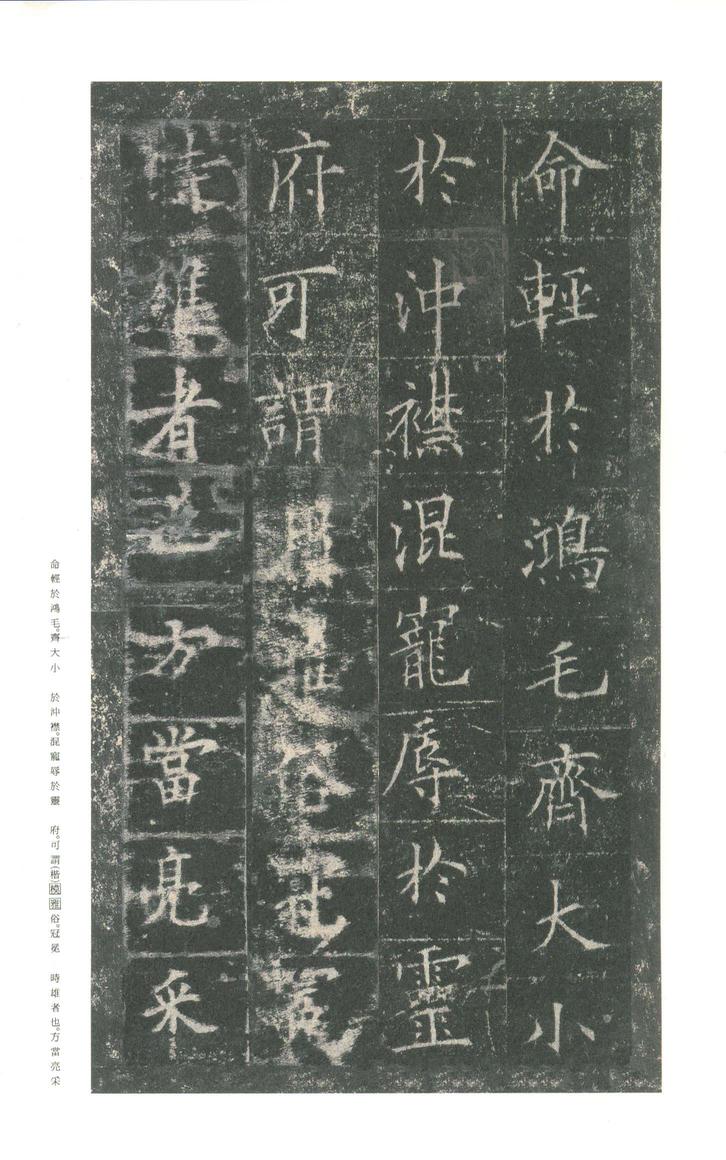 命輕於鴻毛齊大小
於沖襟混寵辱於靈
府可謂俗冠冕
時雄者也方當亮采
命輕於鴻毛。齊大小　於沖襟。混寵辱於靈　府。可謂(楷)模雅俗。冠冕　時雄者也。方當亮采